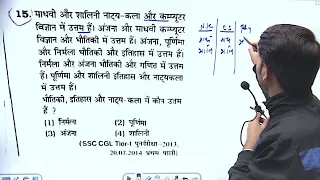 15. माधवी और शालिनी नाट्य-कला और कम्प्यूटर
विज्ञान में उत्तम हैं। अंजना और माधवी कम्प्यूटर
विज्ञान और भौतिकी में उत्तम हैं। अंजना, पूर्णिमा
और निर्मला भौतिकी और इतिहास में उत्तम हैं।
निर्मला और अंजना भौतिकी और गणित में उत्तम
हैं। पूर्णिमा और शालिनी इतिहास और नाट्यकला
में उत्तम हैं।
भौतिकी, इतिहास और नाट्य-कला में कौन उत्तम
हैं ?
(1) निर्मला (2) पूर्णिमा
(3) अंजना (4) शालिनी
(SSC CGL Tier-I पुनर्परीक्षा-2013,
20.07.2014 प्रथम पाली)